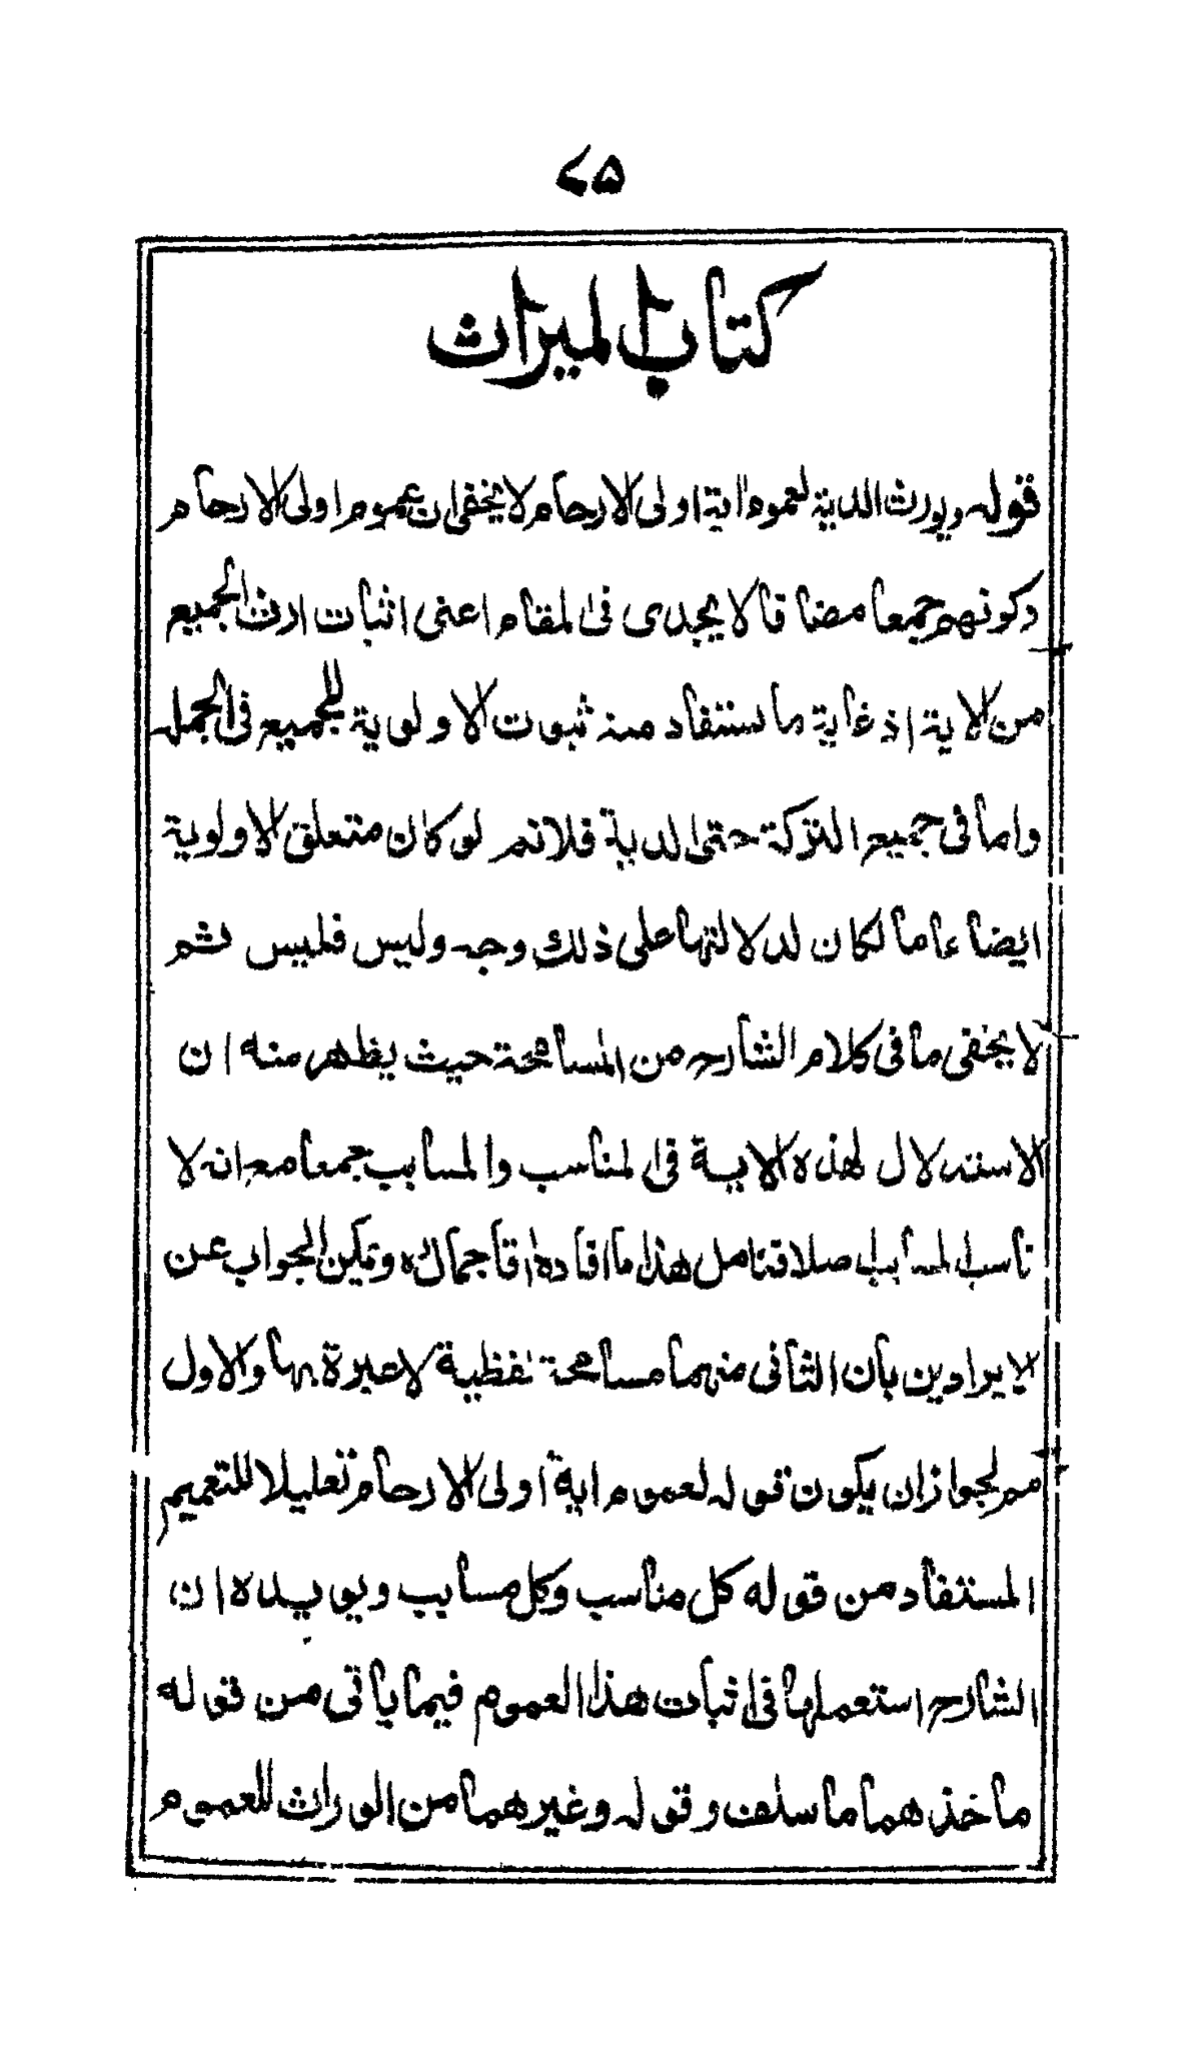 ٤٥
كتاب الميراث
قوله ويورث الدية لعموم اية اولى الارحام لا يخفى ان عموم اولى الارحام
وكونهم جمعا مضافا لا يجدى فى المقام اعنى اثبات ارث الجميع
من الاية اذ غاية ما ستفاد منه ثبوت الاولوية للجميع فى الجمله
واما فى جميع التركة حتى الدية فلا نعم لو كان متعلق الاولوية
ايضا عاما لكان لدلالتها على ذلك وجه وليس فليس ثم
لا يخفى ما فى كلام الشارح من المسامحة حيث يظهر منه ان
الاستدلال لهذه الاية فى المناسب والمسابب جمعا مع انه لا
تناسب المسابب اصلا فتامل هذا ما افاده اقا جمال ره ويمكن الجواب عن
الايرادين بان الثانى منهما مسامحة لفظية لا عبرة بها والاول
مم لجواز ان يكون قوله لعموم اية اولى الارحام تعليلا للتعميم
المستفاد من قوله كل مناسب وكل مسابب ويويده ان
الشارح استعملها فى اثبات هذا العموم فيما ياتى من قوله
ماخذهما ما سلف وقوله وغيرهما من الوراث للعموم